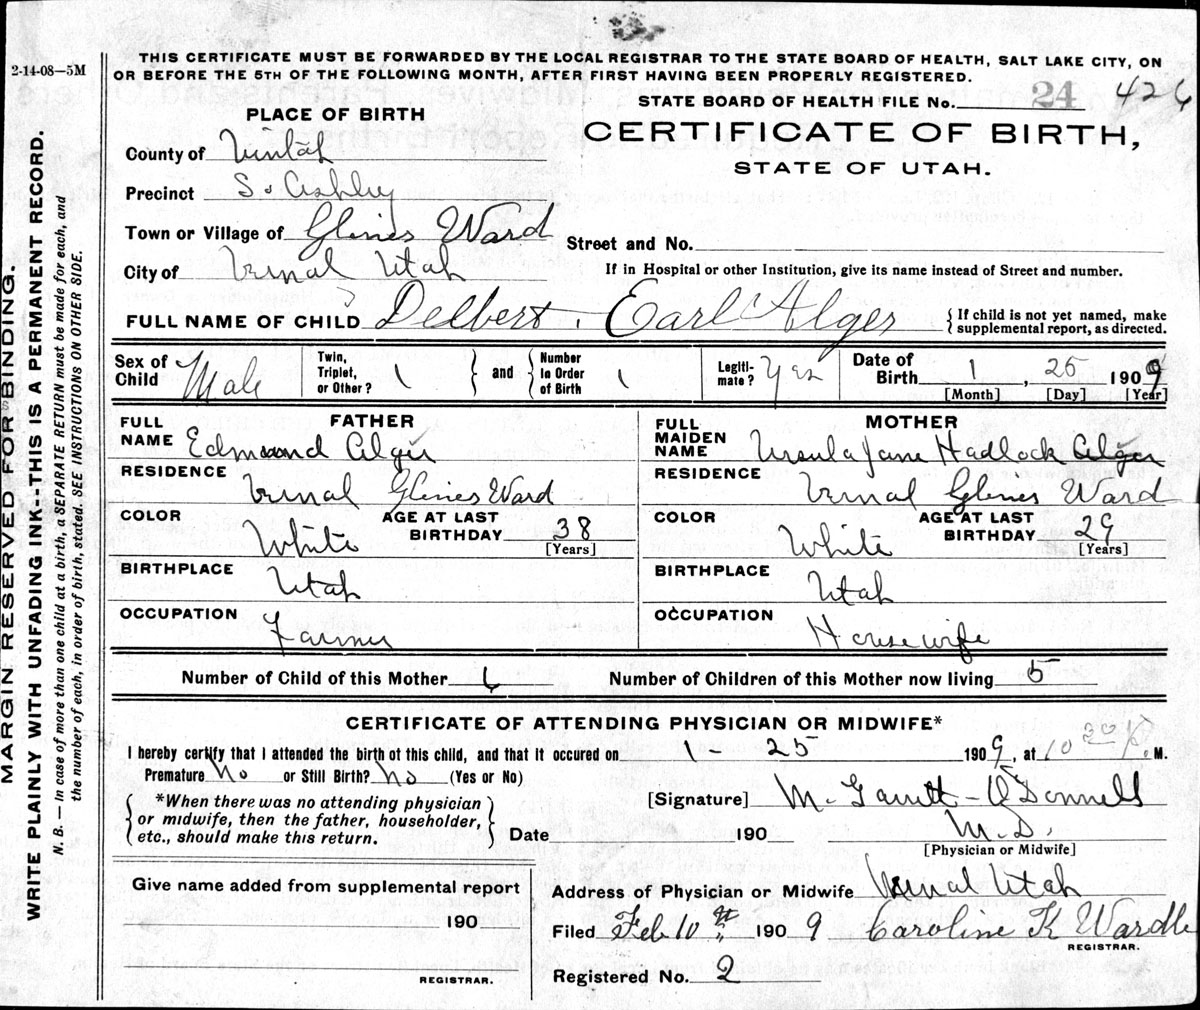 2-14-08—5M
THIS CERTIFICATE MUST BE FORWARDED BY THE LOCAL REGISTRAR TO THE STATE BOARD OF HEALTH, SALT LAKE CITY, ON
OR BEFORE THE 5TH OF THE FOLLOWING MONTH, AFTER FIRST HAVING BEEN PROPERLY REGISTERED.
STATE BOARD OF HEALTH FILE No. 24 426
PLACE OF BIRTH
CERTIFICATE OF BIRTH,
STATE OF UTAH.
County of Uintah
Precinct So Ashley
Town or Village of Glines Ward
Street and No.
City of Vernal Utah
If in Hospital or other Institution, give its name instead of Street and number.
FULL NAME OF CHILD Delbert Earl Alger
{ If child is not yet named, make
supplemental report, as directed.
Sex of Child Male
Twin, Triplet, or Other? 1
{ and }
Number In Order of Birth 1
Legiti-mate? Yes
Date of Birth 1, 25 1909
[Month] [Day] [Year]
FATHER
FULL NAME Edmund Alger
RESIDENCE Vernal Glines Ward
COLOR White
AGE AT LAST BIRTHDAY 38
[Years]
BIRTHPLACE Utah
OCCUPATION Farmer
MOTHER
FULL MAIDEN NAME Ursula Jane Hadlock Alger
RESIDENCE Vernal Glines Ward
COLOR White
AGE AT LAST BIRTHDAY 29
[Years]
BIRTHPLACE Utah
OCCUPATION House wife
Number of Child of this Mother 6
Number of Children of this Mother now living 5
CERTIFICATE OF ATTENDING PHYSICIAN OR MIDWIFE*
I hereby certify that I attended the birth of this child, and that it occured on 1 25 1909, at 10 30 P. M.
Premature No or Still Birth? No (Yes or No)
*When there was no attending physician
or midwife, then the father, householder,
etc., should make this return.
[Signature] M. Garrett-O'Donnell
Date 190
M.D.
[Physician or Midwife]
Give name added from supplemental report
190
REGISTRAR.
Address of Physician or Midwife Vernal Utah
Filed Feb 10th, 1909 Caroline K Wardle
REGISTRAR.
Registered No. 2
MARGIN RESERVED FOR BINDING.
WRITE PLAINLY WITH UNFADING INK--THIS IS A PERMANENT RECORD.
N. B. — In case of more than one child at a birth, a SEPARATE RETURN must be made for each, and
the number of each, in order of birth, stated. SEE INSTRUCTIONS ON OTHER SIDE.